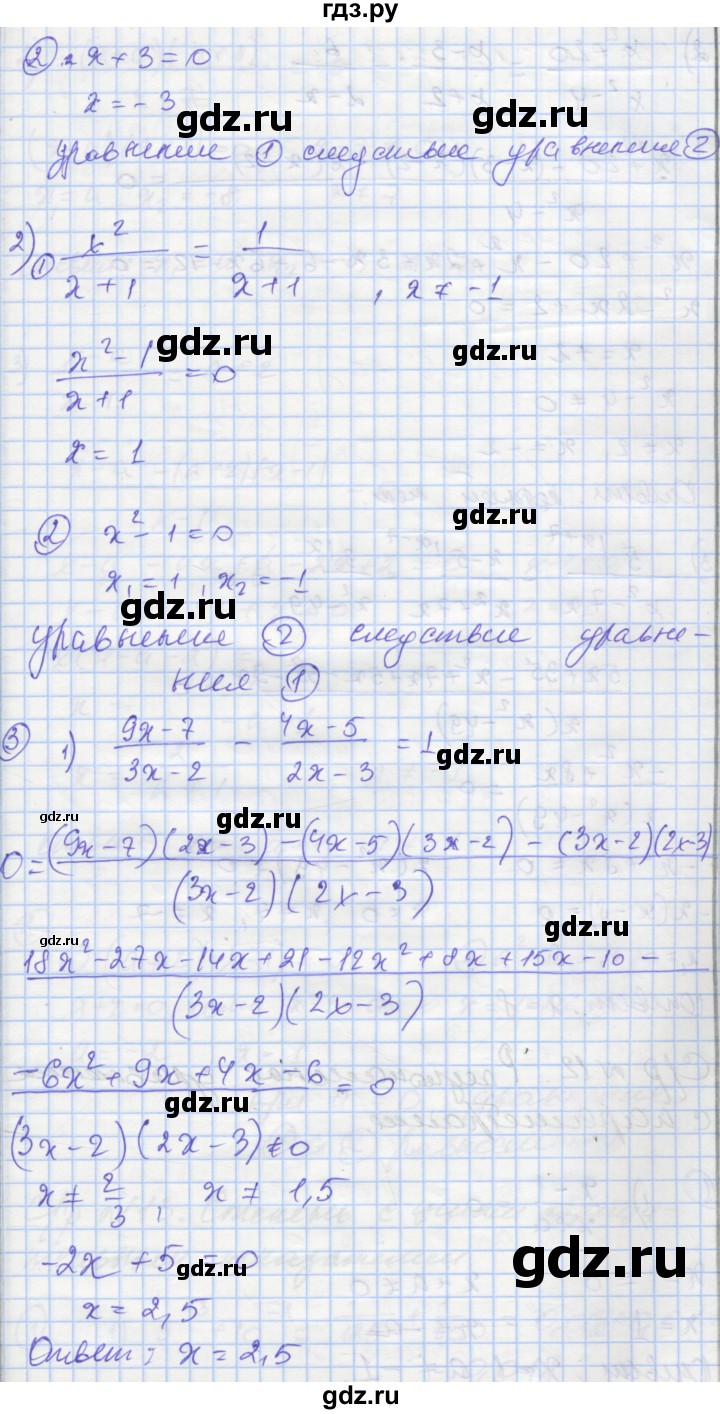 гдз.ру
② x + 3 = 0
x = - 3
gdz.ru
gdz.ru
уравнение ① следствие уравнения ②
2) ① x² / (x + 1) = 1 / (x + 1) , x ≠ -1
gdz.ru
gdz.ru
(x² - 1) / (x + 1) = 0
x = 1
gdz.ru
② x² - 1 = 0
x₁ = 1 , x₂ = -1
gdz.ru
уравнение ② следствие уравне-
ния ①
③ 1) (9x - 7) / (3x - 2) - (4x - 5) / (2x - 3) = 1
gdz.ru
gdz.ru
gdz.ru
0 = ((9x - 7)(2x - 3) - (4x - 5)(3x - 2) - (3x - 2)(2x - 3)) / ((3x - 2)(2x - 3))
gdz.ru
gdz.ru
18x² - 27x - 14x + 21 - 12x² + 8x + 15x - 10 -
(3x - 2)(2x - 3)
- 6x² + 9x + 4x - 6 = 0
gdz.ru
(3x - 2)(2x - 3) ≠ 0
x ≠ 2/3 , x ≠ 1,5
-2x + 5 = 0
gdz.ru
gdz.ru
x = 2,5
Ответ: x = 2,5
gdz.ru